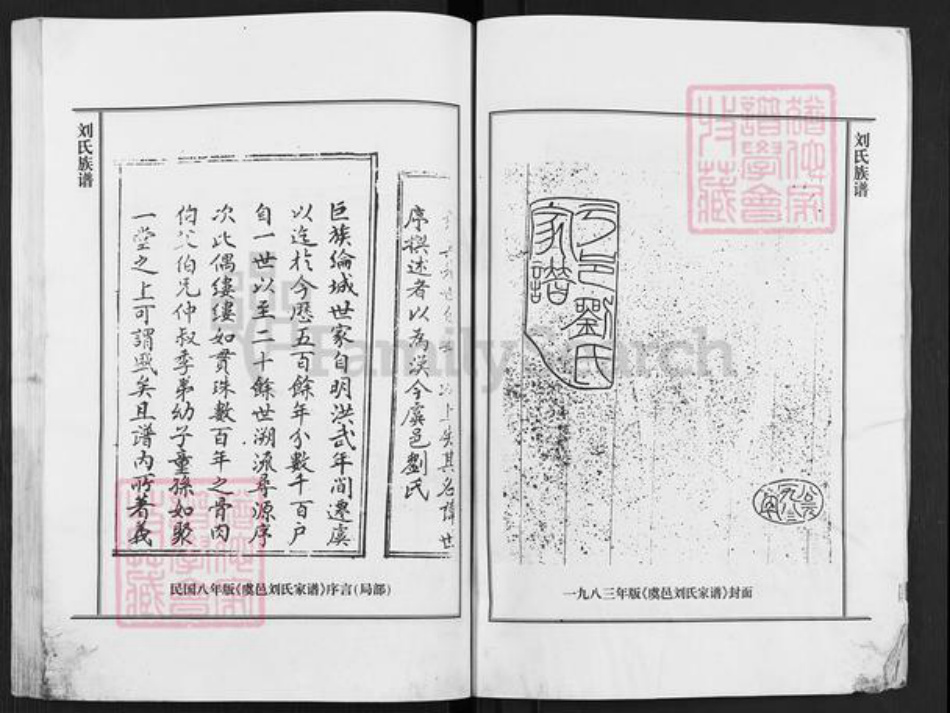 刘氏族谱
虞邑劉氏
家譜
一九八三年版《虞邑刘氏家谱》封面
刘氏族谱
序撰述者以為误今虞邑劉氏
巨族綸城世家自明洪武年间遷虞
以迄於今歷五百餘年分數千百户
自一世以至二十餘世溯流尋源序
次比偶縷縷如貫珠數百年之骨肉
伯父伯兄仲叔季弟幼子童孫如聚
一堂之上可謂盛矣且譜内所著義
民国八年版《虞邑刘氏家谱》序言(局部)
FamilySearch